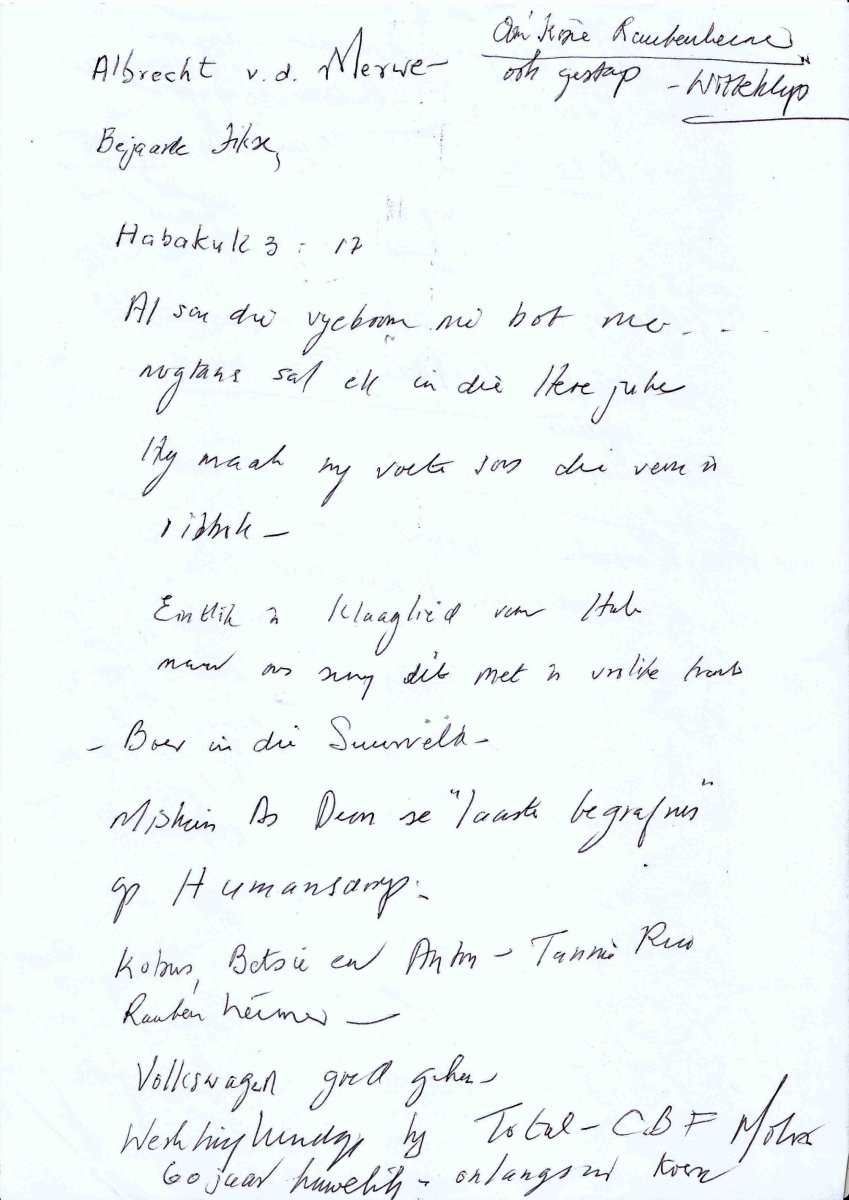 Oom Kosie Raubenheimer
Albrecht v.d. Merwe -
ook gestap - Witteklip
Bejaarde fikse,
Habakuk 3 : 17
Al sou die vyeboom nie bot nie . . .
nogtans sal ek in die Here jubel
Hy maak my voete soos die van 'n
ribbok -
Eintlik 'n klaaglied van Hab
maar ons sing dit met 'n vrolike
- Boer in die Suurveld -
Miskien As Deon se "laaste begrafnis"
op Humansdorp -
Kobus, Betsie en Anton - Tannie
Raubenheimer -
Volkswagen goed gehou
Werktuigkundige by Total - CBF
60 jaar huwelik - onlangs